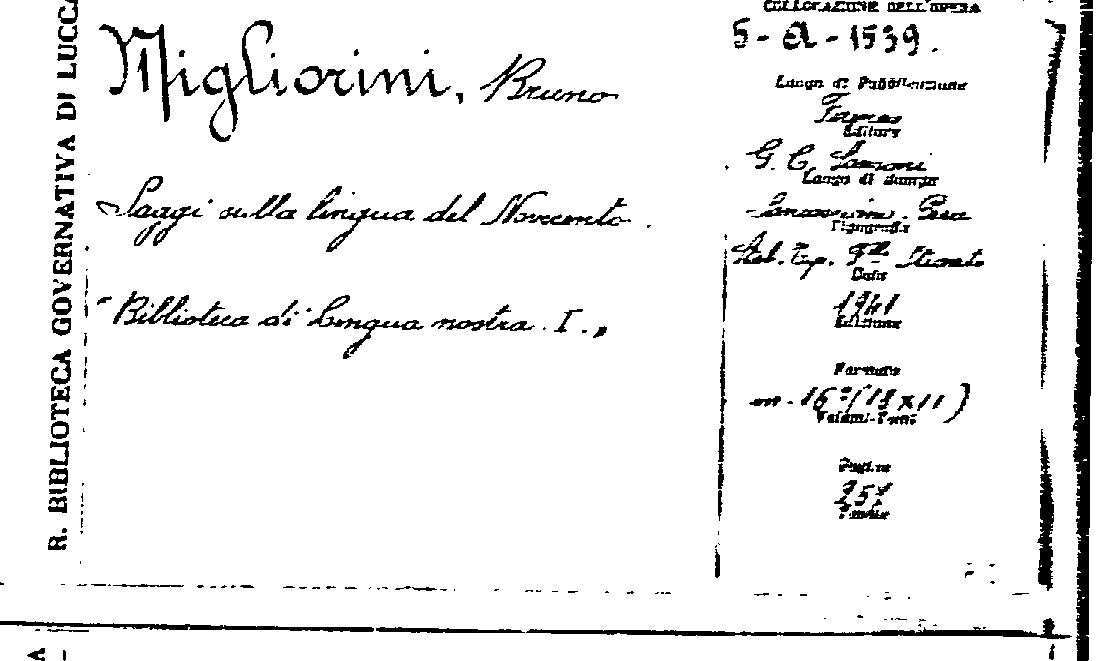 R. BIBLIOTECA GOVERNATIVA DI LUCCA
Migliorini, Bruno
Saggi sulla lingua del Novecento.
"Biblioteca di Lingua nostra. I.„
COLLOCAZIONE DELL'OPERA
5-A-1539.
Luogo di Pubblicazione
Firenze
Editore
G. C. Sansoni
Luogo di stampa
Pisa
Tipografia
Stab. Tip. F.lli
Data
1941
Edizione
Formato
in-16°(18x11)
Volumi-Parti
Pagine
257
Tavole
A